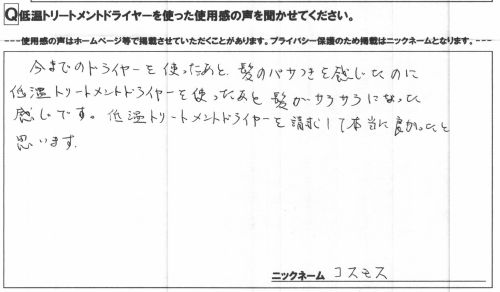 Q低温トリートメントドライヤーを使った使用感の声を聞かせてください。
----使用感の声はホームページ等で掲載させていただくことがあります。プライバシー保護のため掲載はニックネームとなります。---
今までのドライヤーを使ったあと、髪のパサつきを感じたのに
低温トリートメントドライヤーを使ったあと髪がサラサラになった
感じです。低温トリートメントドライヤーを購入して本当に良かったと
思います。
ニックネーム コスモス